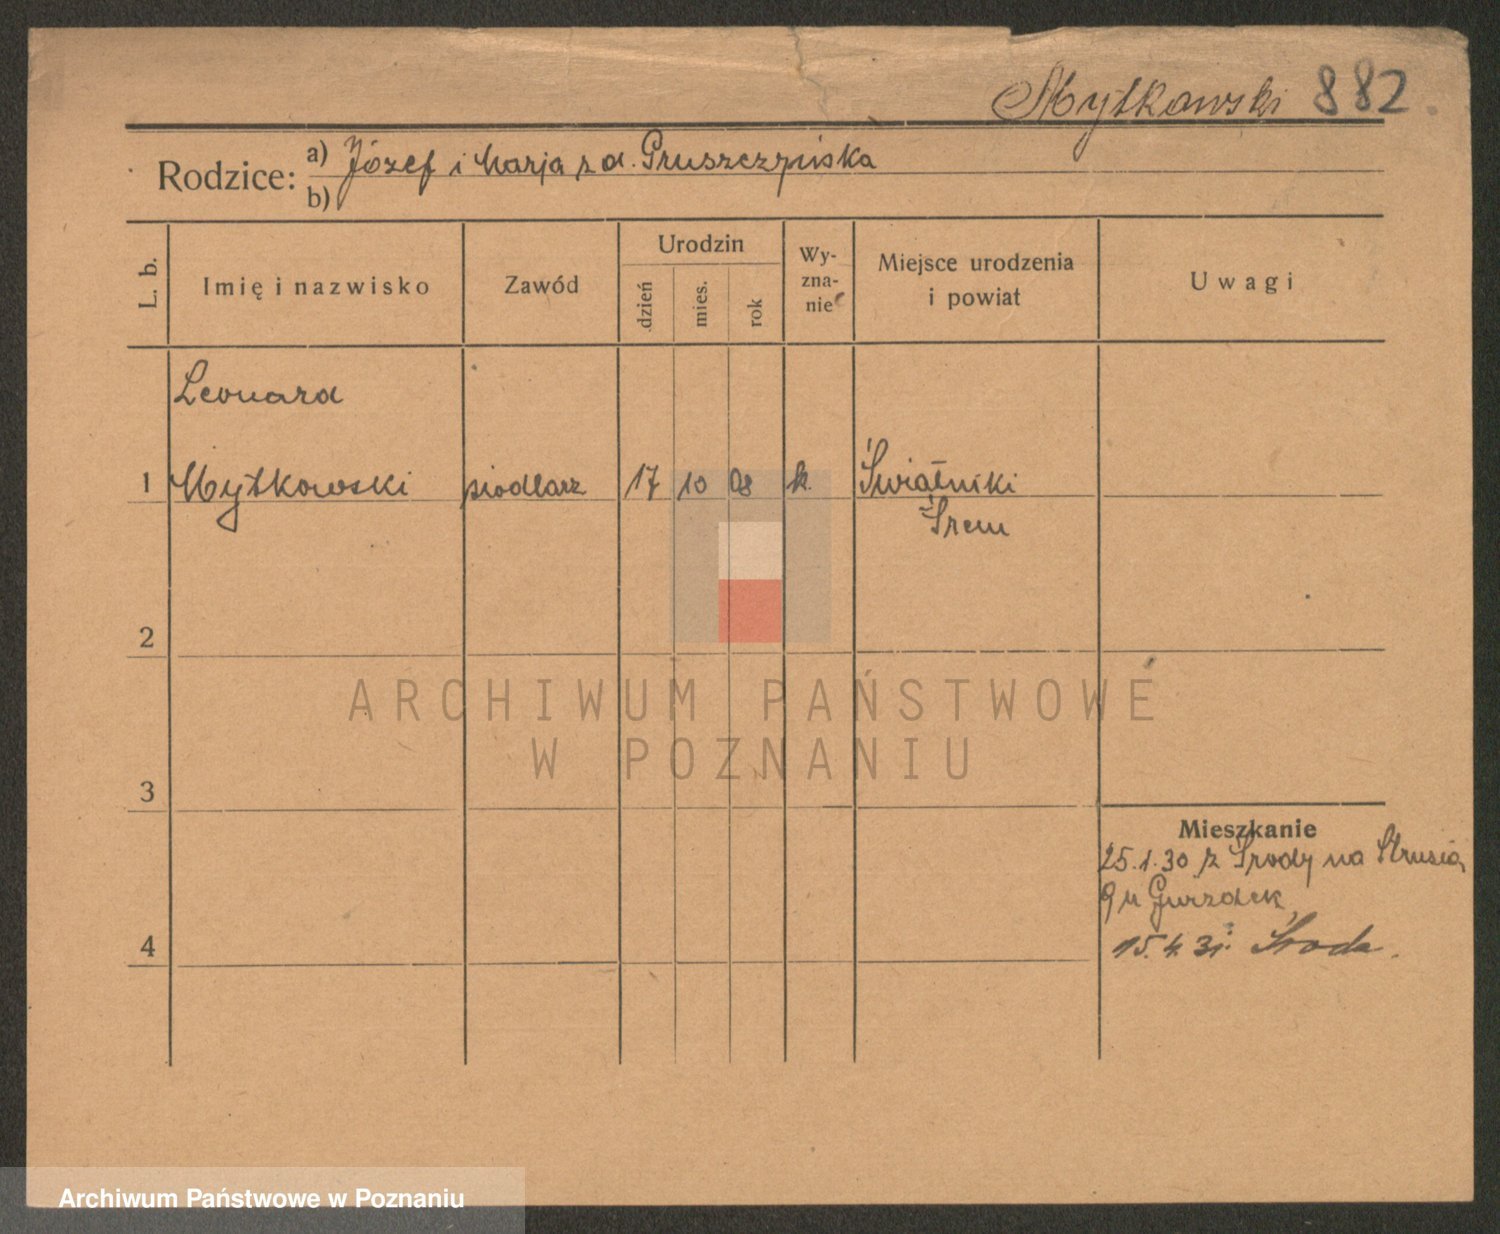 Mytkowski 882
Rodzice: a) Józef i Marja z d. Gruszczyńska
b)
L. b.
Imię i nazwisko
Zawód
Urodzin
dzień
mies.
rok
Wy-
zna-
nie
Miejsce urodzenia
i powiat
Uwagi
Leonard
1 Mytkowski siodlarz 17 10 08 k. Świątniki
Śrem
2
ARCHIWUM PAŃSTWOWE
W POZNANIU
3
Mieszkanie
25.1.30 z Środy na Strusia
9 u Gwizdek
4
15.4.31. Środa.
Archiwum Państwowe w Poznaniu